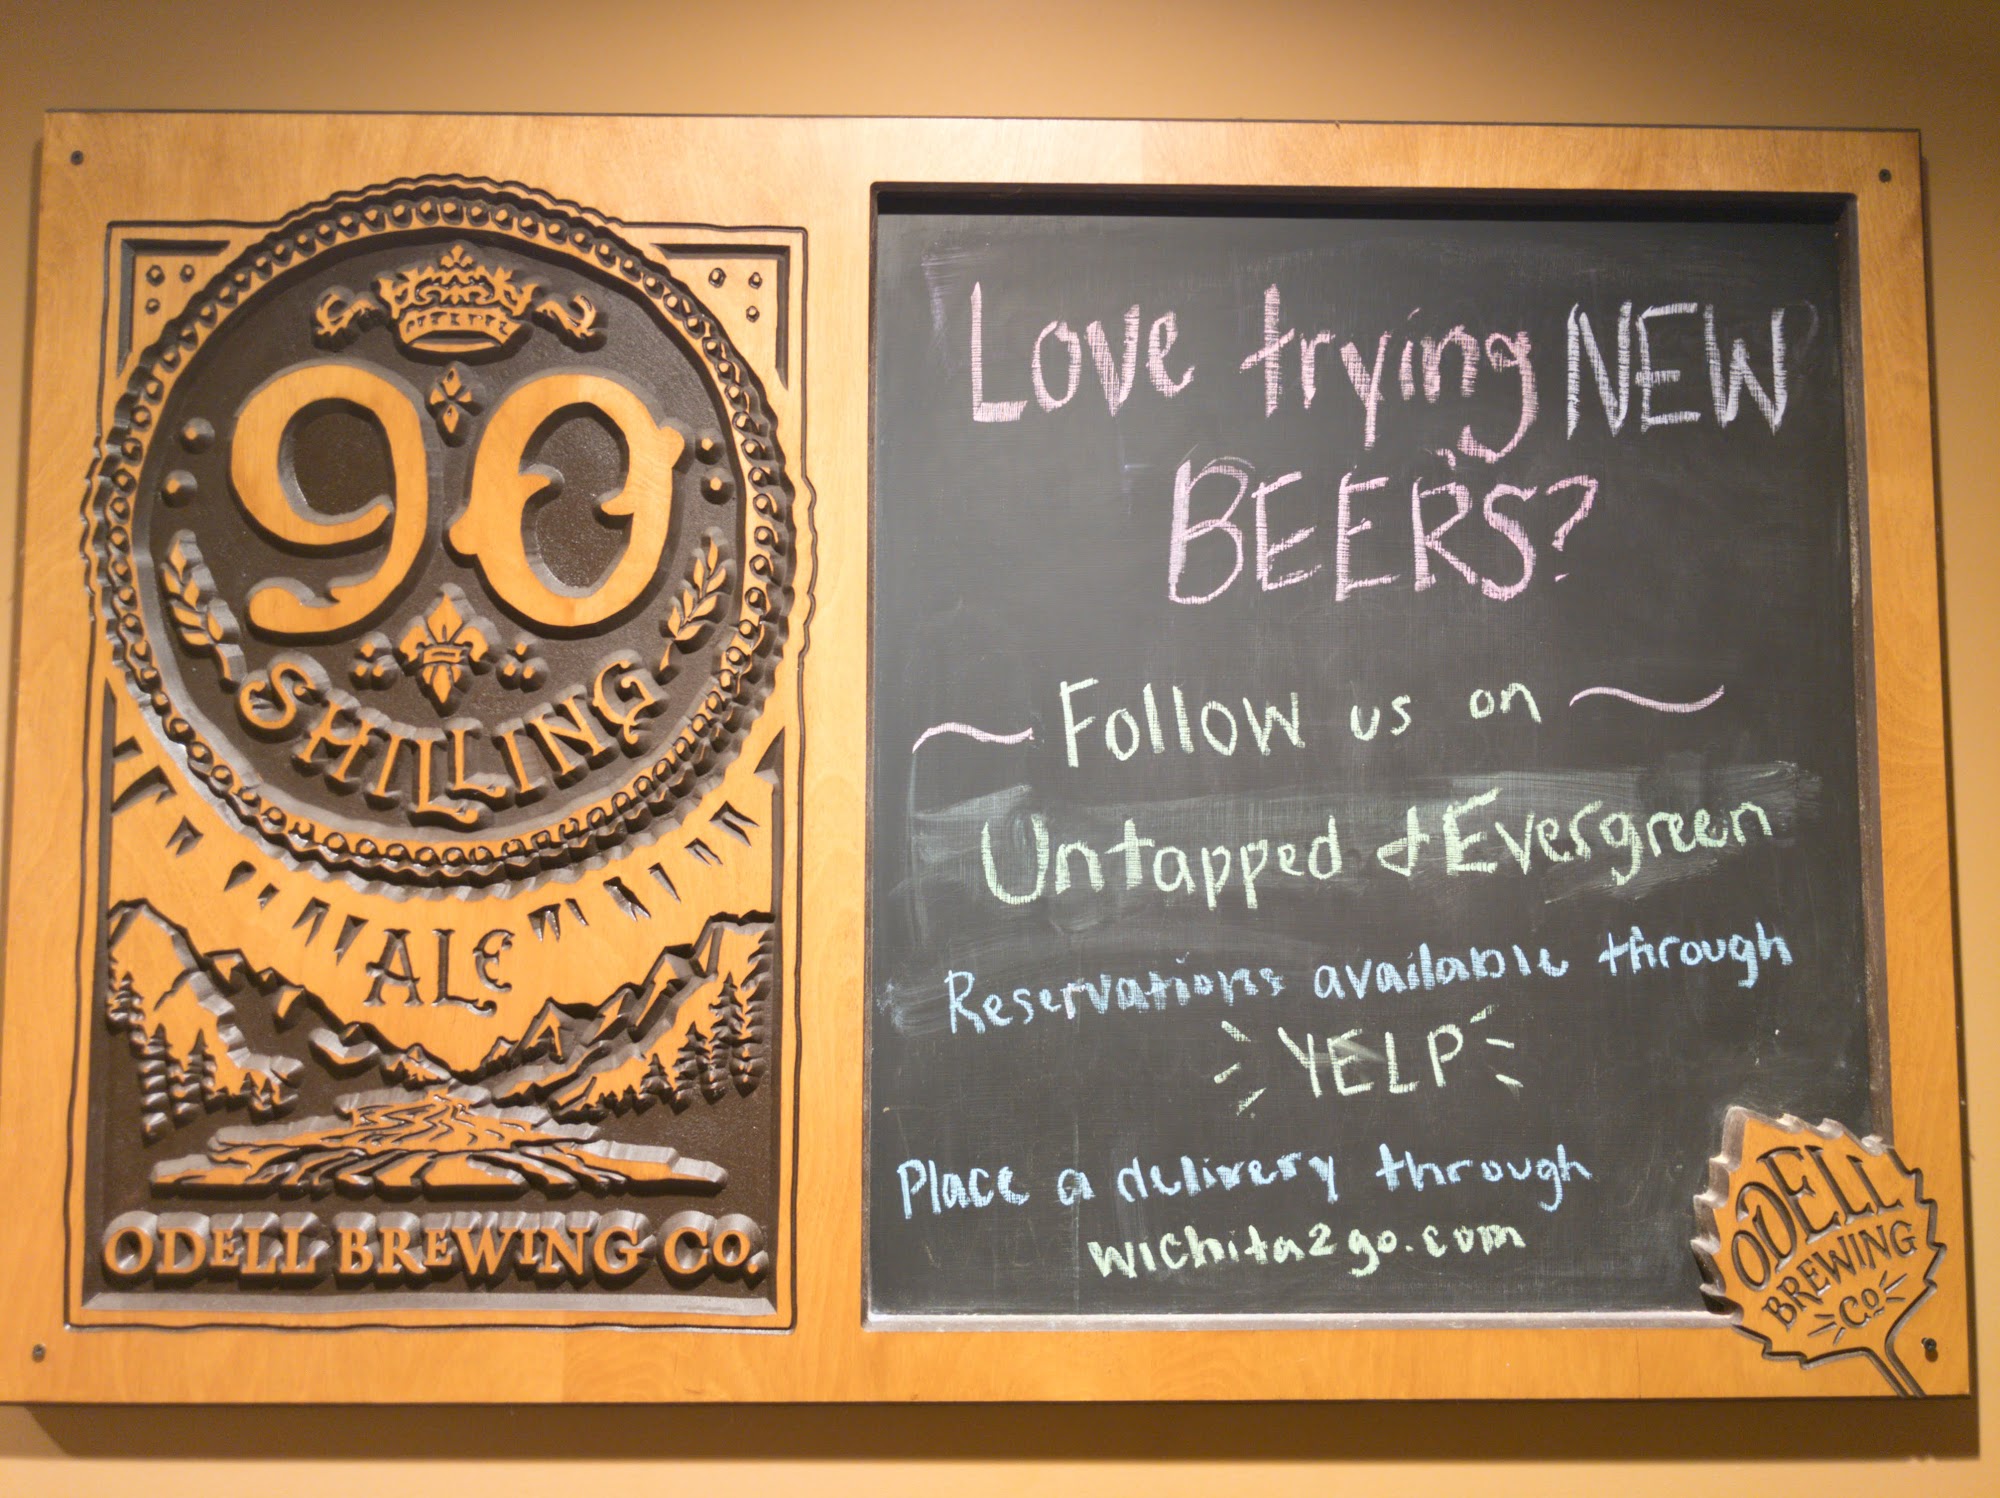 90
SHILLING
ALE
ODELL BREWING CO.
Love trying NEW
BEERS?
Follow us on
Untapped & Evergreen
Reservations available through
YELP
Place a delivery through
wichita2go.com
ODELL
BREWING
CO